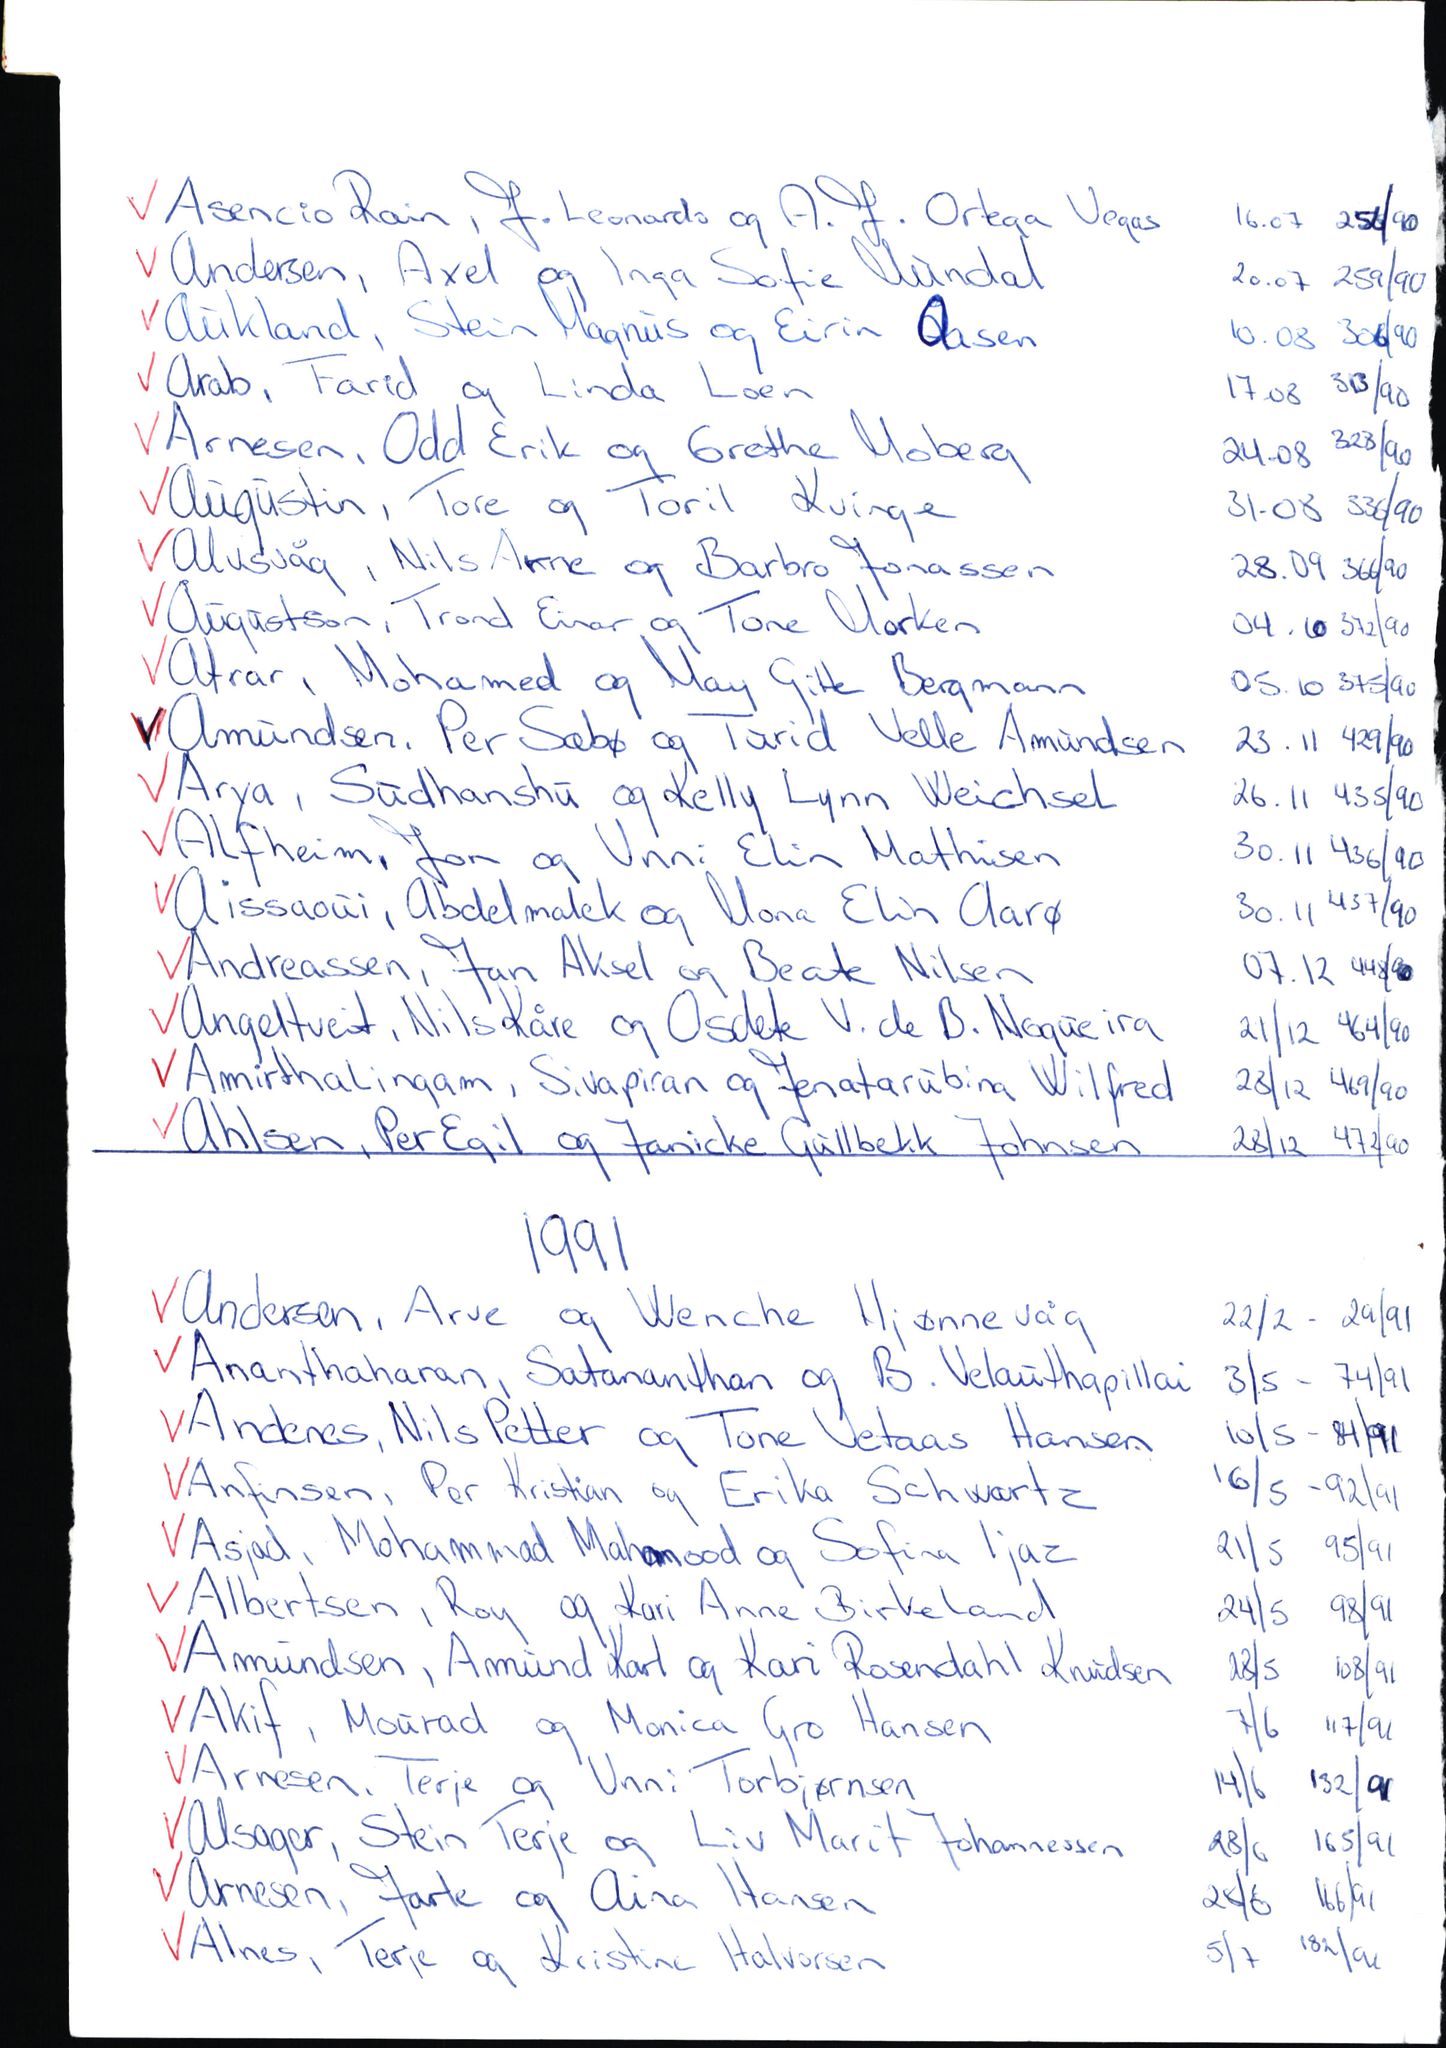 ✓ Asencio Rain, J. Leonardo og A. J. Ortega Vegas 16.07 256/90
✓ Andersen, Axel og Inga Sofie Mundal 20.07 259/90
✓ Aukland, Stein Magnus og Eirin Aasen 10.08 306/90
✓ Arab, Farid og Linda Loen 17.08 313/90
✓ Arnesen, Odd Erik og Grethe Moberg 24.08 323/90
✓ Augustin, Tore og Toril Kvinge 31.08 336/90
✓ Alvsvåg, Nils Arne og Barbro Jonassen 28.09 366/90
✓ Augustson, Trond Einar og Tone Morken 04.10 372/90
✓ Atrar, Mohamed og May Gitte Bergmann 05.10 375/90
✓ Amundsen, Per Sæbø og Turid Velle Amundsen 23.11 429/90
✓ Arya, Sudhanshu og Kelly Lynn Weichsel 26.11 435/90
✓ Alfheim, Jon og Unni Elin Mathisen 30.11 436/90
✓ Aissaoui, Abdelmalek og Mona Elin Aarø 30.11 437/90
✓ Andreassen, Jan Aksel og Beate Nilsen 07.12 448/90
✓ Angeltveit, Nils Kåre og Osdete V. de B. Nogueira 21/12 464/90
✓ Amirthalingam, Sivapiran og Jenatarubina Wilfred 28/12 469/90
✓ Ahlsen, Per Egil og Janicke Gullbekk Johnsen 28/12 472/90
1991
✓ Andersen, Arve og Wenche Mjønnevåg 22/2 - 29/91
✓ Ananthaharan, Satananthan og B. Velauthapillai 3/5 - 74/91
✓ Andenes, Nils Petter og Tone Vetaas Hansen 10/5 - 84/91
✓ Anfinsen, Per Kristian og Erika Schwartz 16/5 - 92/91
✓ Asjad, Mohammad Mahmood og Sofina Ijaz 21/5 95/91
✓ Albertsen, Roy og Kari Anne Birkeland 24/5 98/91
✓ Amundsen, Amund Karl og Kari Rosendahl Knudsen 28/5 108/91
✓ Akif, Mourad og Monica Gro Hansen 7/6 117/91
✓ Arnesen, Terje og Unni Torbjørnsen 14/6 132/91
✓ Alsager, Stein Terje og Liv Marit Johannessen 28/6 165/91
✓ Arnesen, Jarle og Aina Hansen 28/6 166/91
✓ Alnes, Terje og Kristine Halvorsen 5/7 182/91